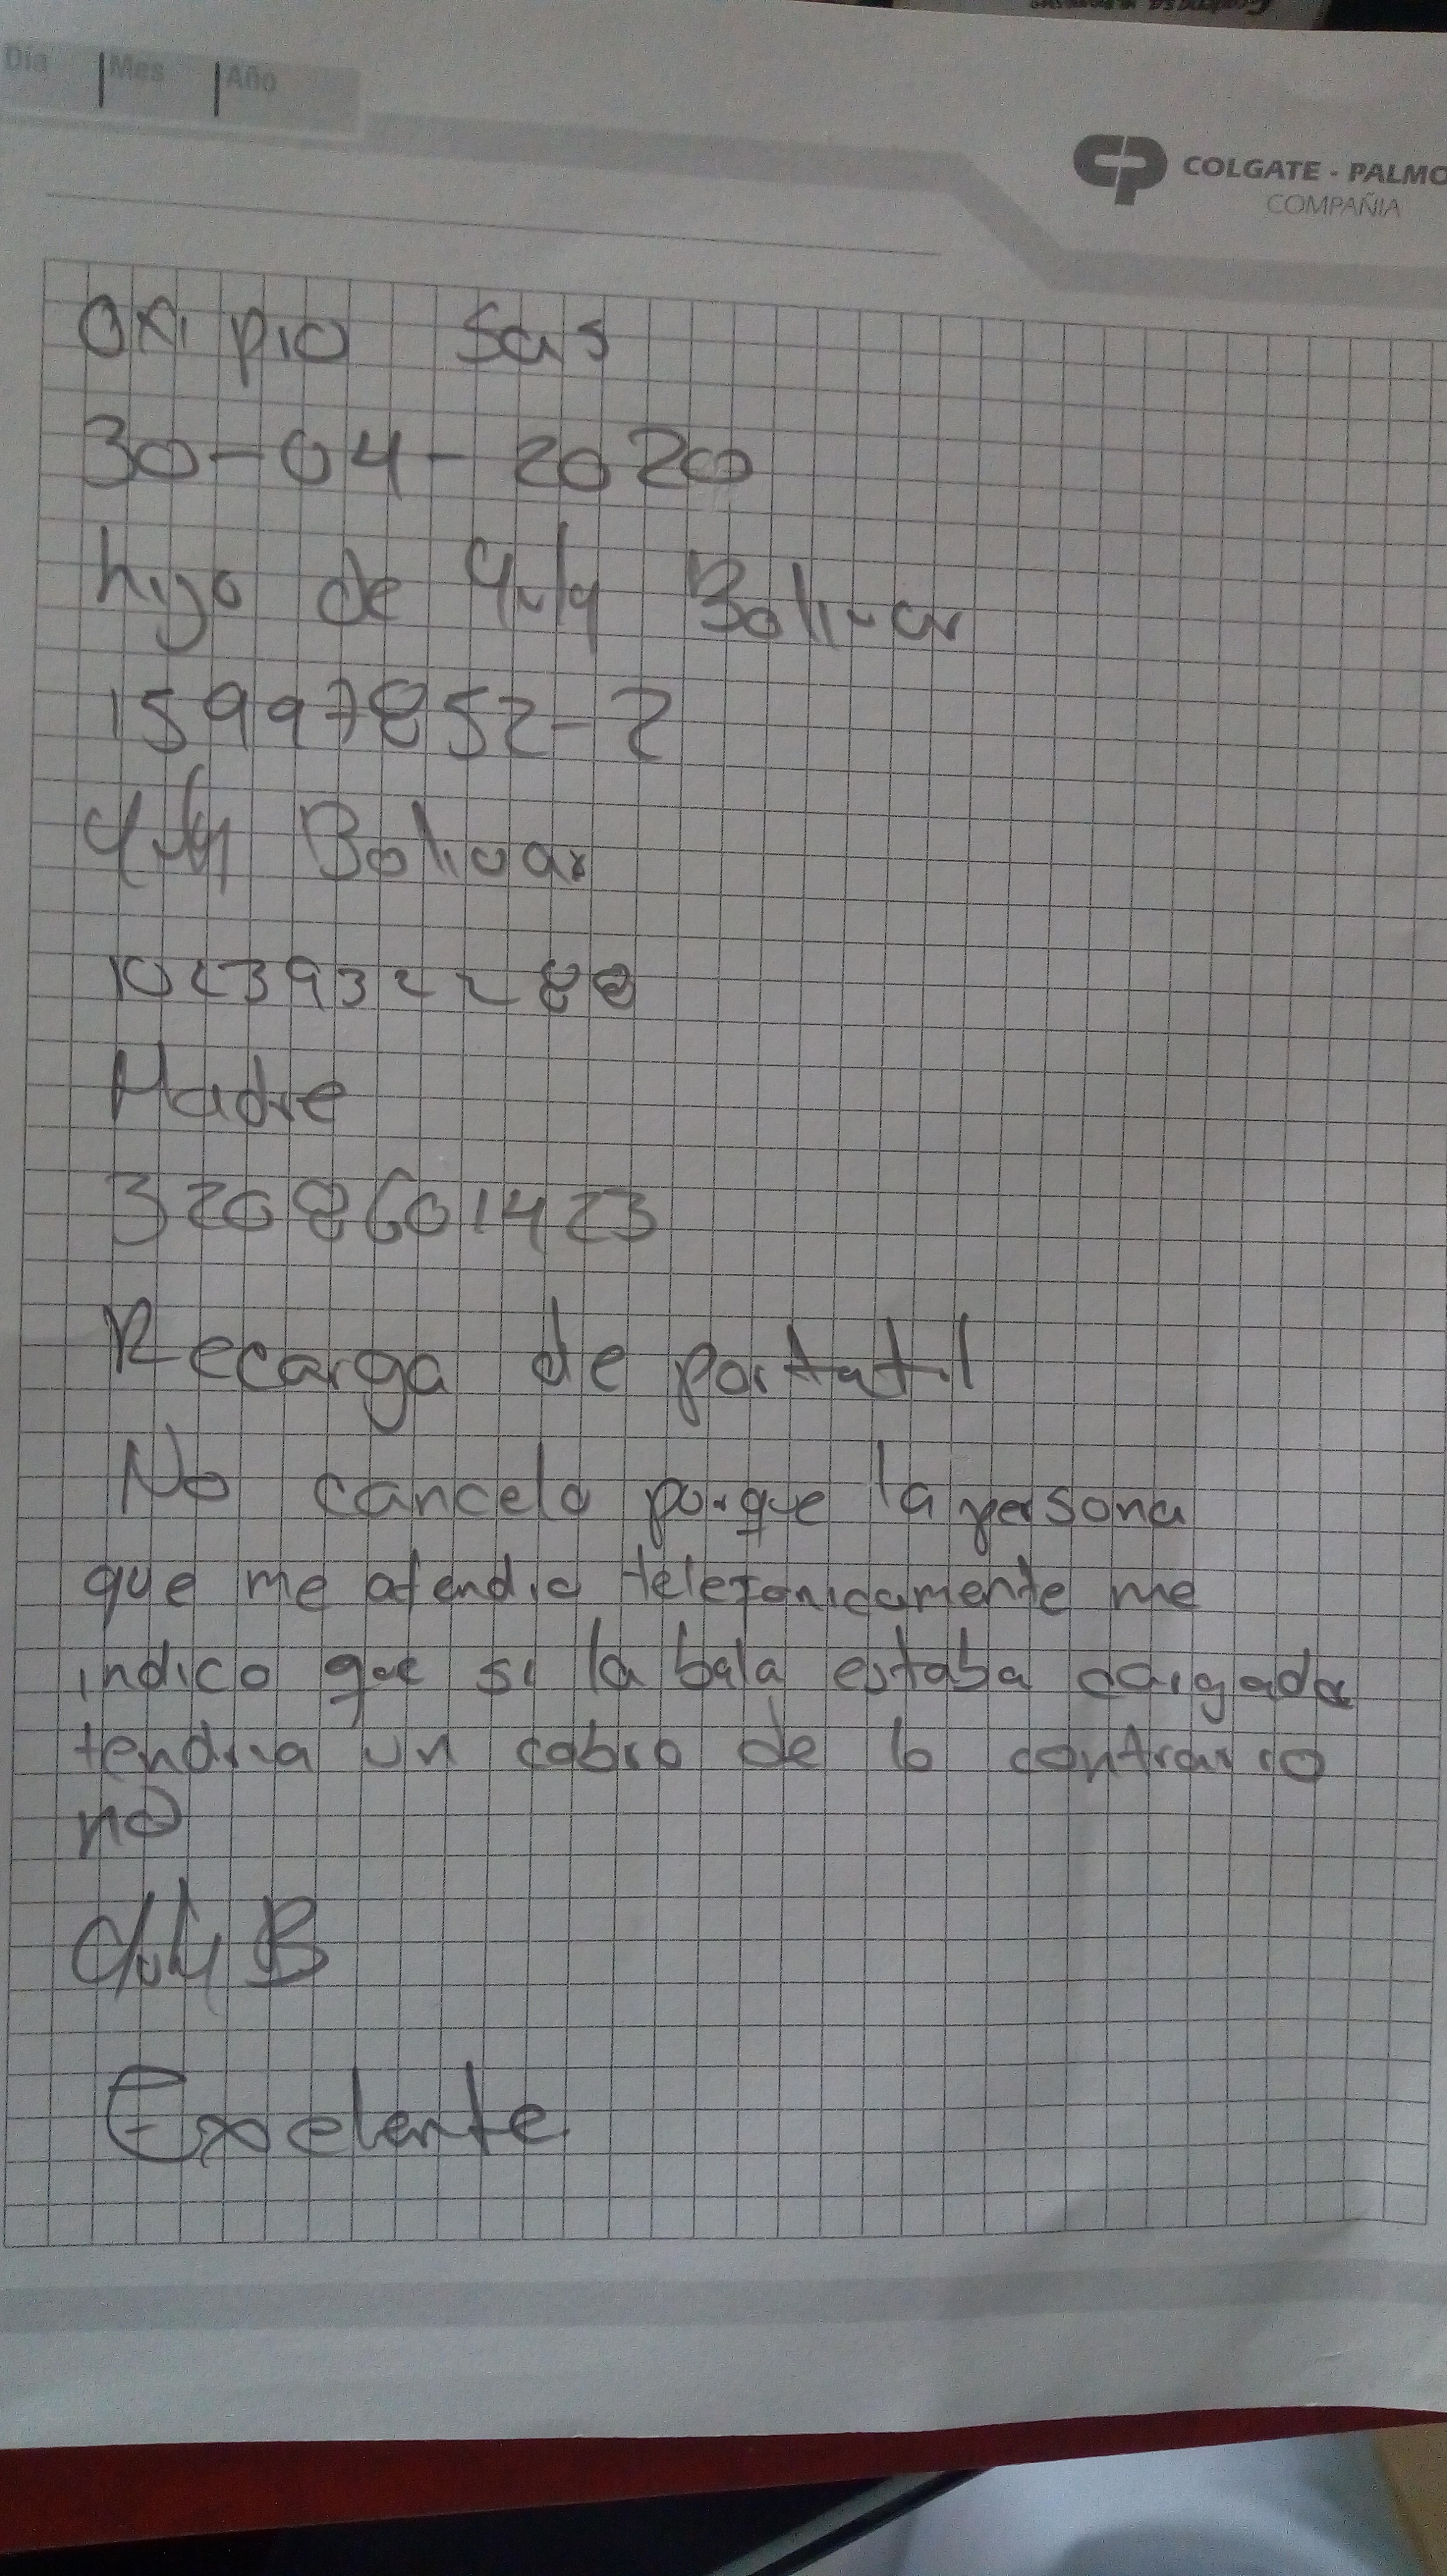 Día Mes Año
COLGATE - PALMO
COMPAÑIA
Oxi pio Sas
30-04-2020
hijo de Yuly Bolivar
15997852-2
Yuly Bolivar
1023932288
Madre
3208601423
Recarga de portatil
No cancelo porque la persona
que me atendio telefonicamente me
indico que si la bala estaba cargada
tendria un cobro de lo contrario
no
Yuly B
Exelente